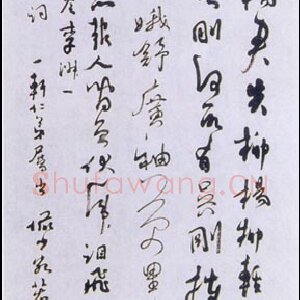 杨君失柳杨柳轻
刚问所有吴刚捧
娥舒广袖万里
忽报人间曾伏虎泪飞
答李淑一
词
一轩仁弟属书
Shufawang.CN